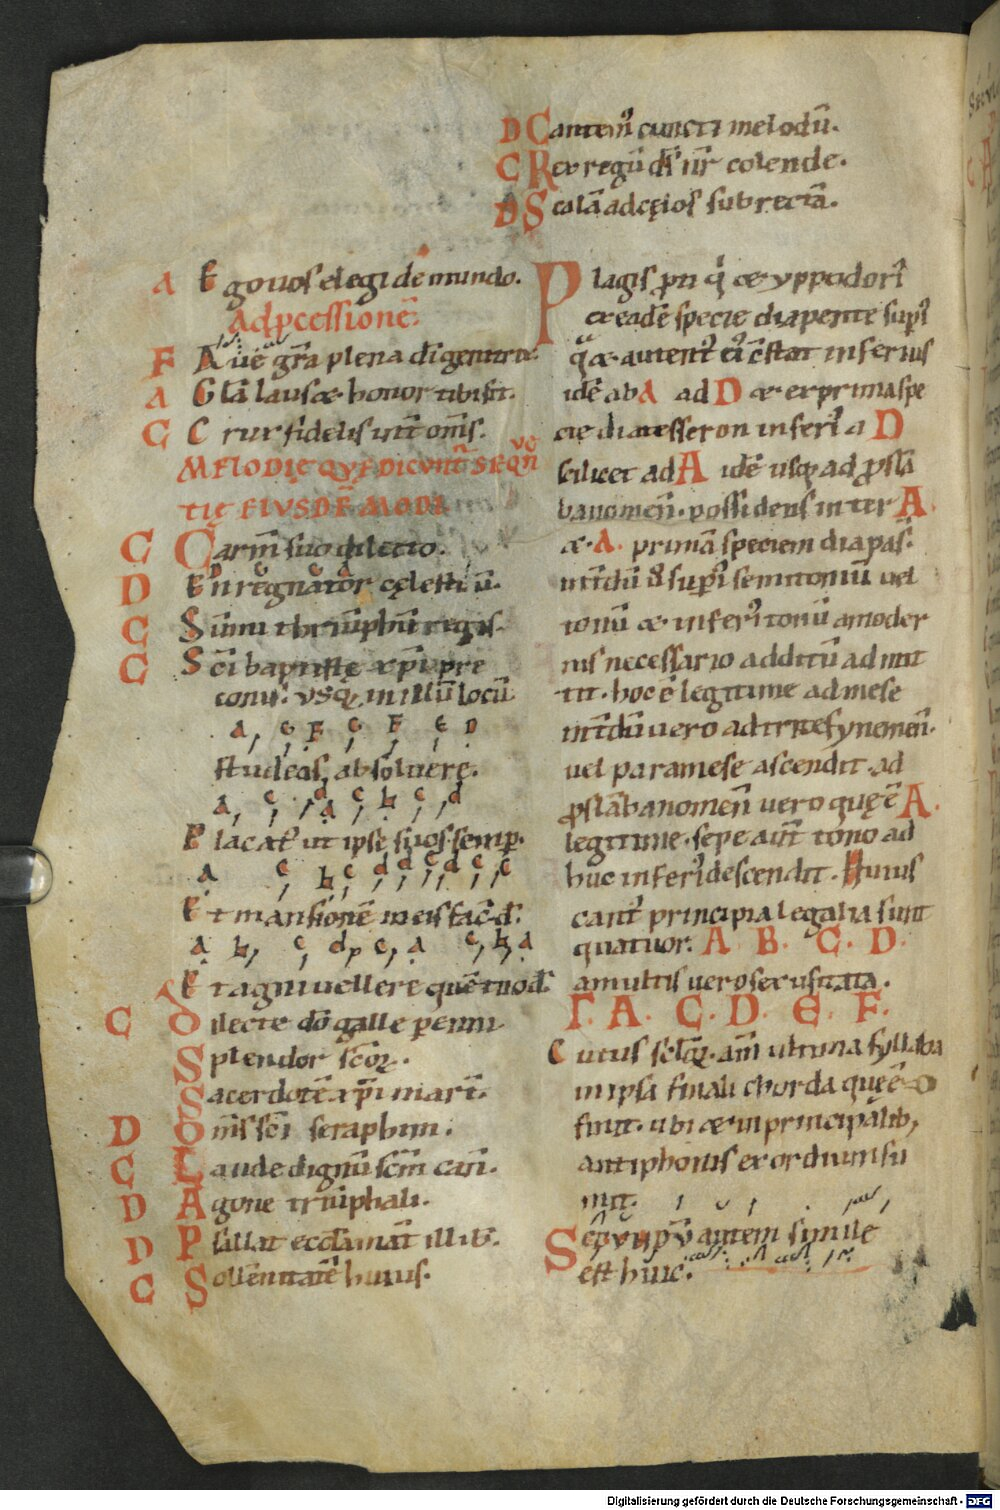 D Cantem᷒ cuncti melodū.
C Rex regū ds̄ nr̄ colende.
D Scalā ad cęlos subrectā.
a Ego uos elegi de mundo.
Ad p̱cessionē.
F Aue gr̄a plena di genitrix
a Glā laus & honor tibi sit.
C Crux fidelis int̄ om̄s.
MELODIĘ QVĘ DICVNT̄ SEQVĒN
TIĘ EIVSDĒ MODI
C Carm̄ suo dilecto.
D En regnator cęlestiū.
C Summi triūphū regis.
C Sc̄i baptistę xp̄i pre
conis. vsq; in illū locū
a, G F G F E D
studeas absoluere.
a, c, d a c h c, d
Placat᷒ ut ipse suos semp̱.
a c h c d d e d c c
Et mansionē in eis fac̄ ds̄.
a h, c, d, c, a c, h a
Et agni uellere quē tu ds̄
C Dilecte dō galle perenni
Splendor sc̄oꝝ.
Sacerdotē xp̄i mart̄.
D Om̄s sc̄i seraphim.
C Laude dignū sc̄m cani.
D Agone triūphali.
D Psallat ecclā mat̄ illib̄.
C Sollēnitatē huius.
Plagis p̱ti q̇ & yppodori᷒
& eadē specie diapente sup̱i᷒
q̇ & autent᷒ ei᷒ c̄stat inferius
idē ab A ad D & ex prima spe
cie diatesseron inferi᷒ a D
scilicet ad A idē usq; ad p̱slā
banomen̄. possidens inter A.
& a. primā speciem diapas᷒.
int̄dū & sup̱i᷒ semitoniū uel
tonū & inferi᷒ tonū a moder
nis necessario additū admit
tit. hoc ē legitime ad mese
int̄dū uero ad trite synemen̄.
uel paramese ascendit. ad
p̱slābanomen̄ uero quę ē A.
legitime. sepe aut̄ tono ad
huc inferi᷒ descendit. Huius
cant᷒ principia legalia sunt
quatuor. A B. C. D.
a multis uero sex usitata.
Γ. A. C. D. E. F.
Cuius sclōꝝ. am̄ ultima syllaba
in ipsa finali chorda quę ē D
finit. ubi & in principalib;
antiphonis exordium su
mit.
autem simile
est huic.
Digitalisierung gefördert durch die Deutsche Forschungsgemeinschaft - DFG